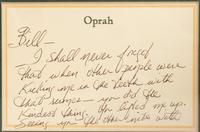 Oprah
Bill—
I shall never forget
that when other people were
kicking me in the teeth with
that rumor— you did the
kindest thing. You lifted me up.
Seeing you